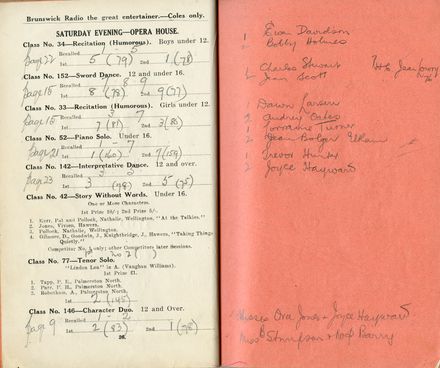 Brunswick Radio the great entertainer.—Coles only.
SATURDAY EVENING—OPERA HOUSE.
Class No. 34—Recitation (Humorous). Boys under 12.
Page 22 Recalled 1 5
1st 5 (79) 2nd 1 (78)
Class No. 152—Sword Dance. 12 and under 16.
Page 15 Recalled 8 9
1st 8 (78) 2nd 9 (77)
Class No. 33—Recitation (Humorous). Girls under 12.
Page 15 Recalled 3 7
1st 7 (81) 2nd 3 (80)
Class No. 52—Piano Solo. Under 16.
Page 21 Recalled 1 7
1st 1 (160) 2nd 7 (159)
Class No. 142—Interpretative Dance. 12 and over.
Page 23 Recalled 3 5
1st 3 (78) 2nd 5 (75)
Class No. 42—Story Without Words. Under 16.
One or More Characters.
1st Prize 10/-; 2nd Prize 5/-.
1. Kerr, Pat and Pollock, Nathalie, Wellington, "At the Talkies."
2. Jones, Vivian, Hawera.
3. Pollock, Nathalie, Wellington.
4. Gilmour, D., Goodwin, J., Knightbridge, J., Hawera, "Taking Things Quietly."
Competitor No. 1 only; other Competitors later Sessions.
Class No. 77—Tenor Solo.
"Linden Lea" in A. (Vaughan Williams).
1st Prize £1.
1. Tapp, F. E., Palmerston North.
2. Parr, F. H., Palmerston North.
3. Robotham, A., Palmerston North.
1st 2 (145)
Class No. 146—Character Duo. 12 and Over.
Page 9 Recalled 1 - 2
1st 2 (83) 2nd 1 (78)
26.
1 Evan Davidson
2 Bobby Holmes
1 Charles Stewart
2 Jean Scott
H.C. Jean
Dawn Larsen
2 Audrey Oates
1 Lorraine Turner
2 Jean Bolger
1 Trevor Hunter
2 Joyce Hayward
Misses Ova Jones & Joyce Hayward
Miss Stimpson & Barry